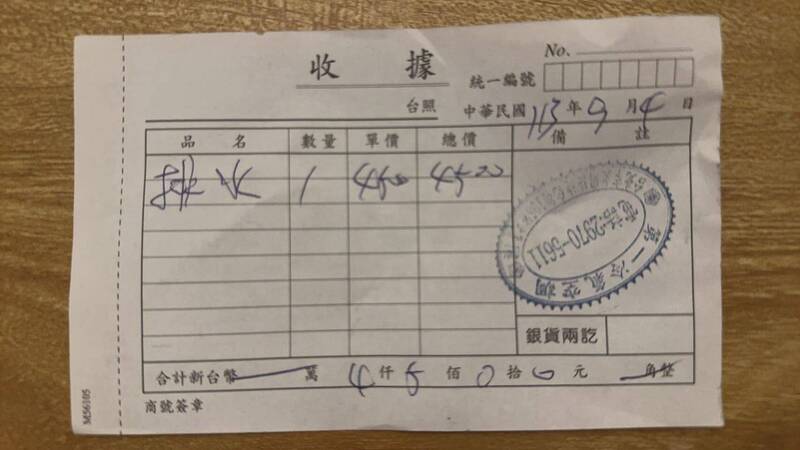 收據
No.
統一編號
台照 中華民國113年9月4日
品名 數量 單價 總價 備註
排水 1 4500 4500
第一冷氣空調
電話:2970-5611
銀貨兩訖
合計新台幣 萬 4仟5佰0拾0元 角整
商號簽章
M56105